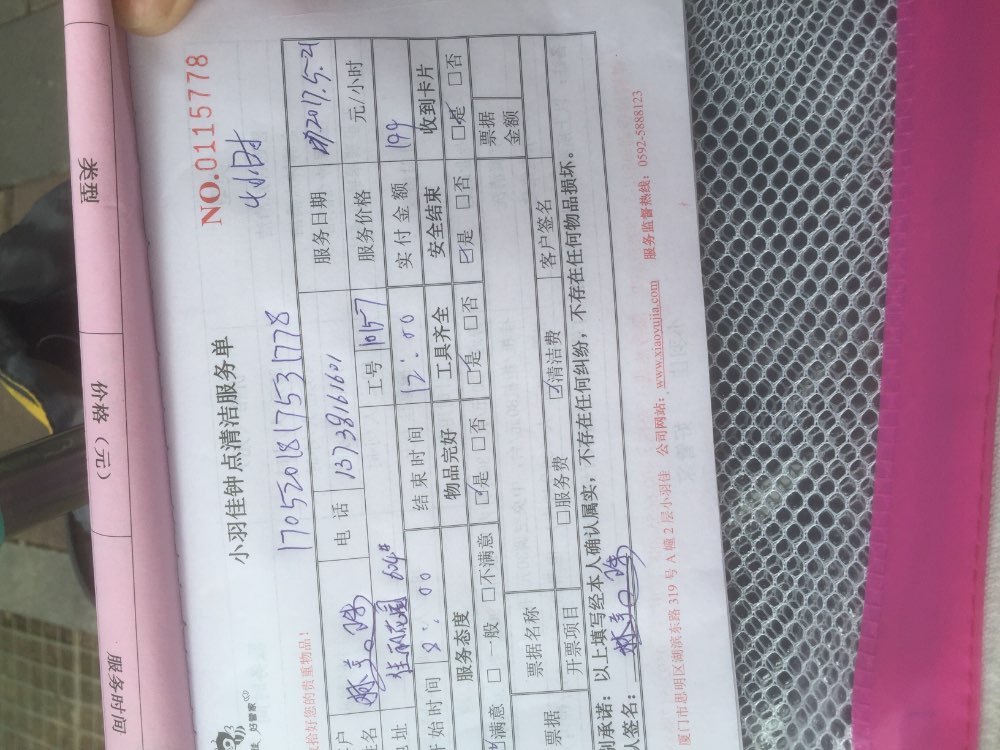 类型 价格（元） 服务时间
好管家
小羽佳钟点清洁服务单
NO.0115778
4小时
1705201817531778
收拾好您的贵重物品！
电话 13738161601 服务日期 2017.5.21
工号 1057 服务价格 元/小时
佳丽花园 604#
开始时间 8:00 结束时间 12:00 实付金额 199
服务态度 物品完好 工具齐全 安全结束 收到卡片
☑满意 □一般 □不满意 ☑是 □否 □是 □否 ☑是 □否 □是 □否
票据 票据名称 票据金额
开票项目 □服务费 ☑清洁费 客户签名
别承诺：以上填写经本人确认属实，不存在任何纠纷，不存在任何物品损坏。
人签名：
厦门市思明区湖滨东路 319 号 A 幢 2 层小羽佳 公司网站：www.xiaoyujia.com 服务监督热线：0592-5888123